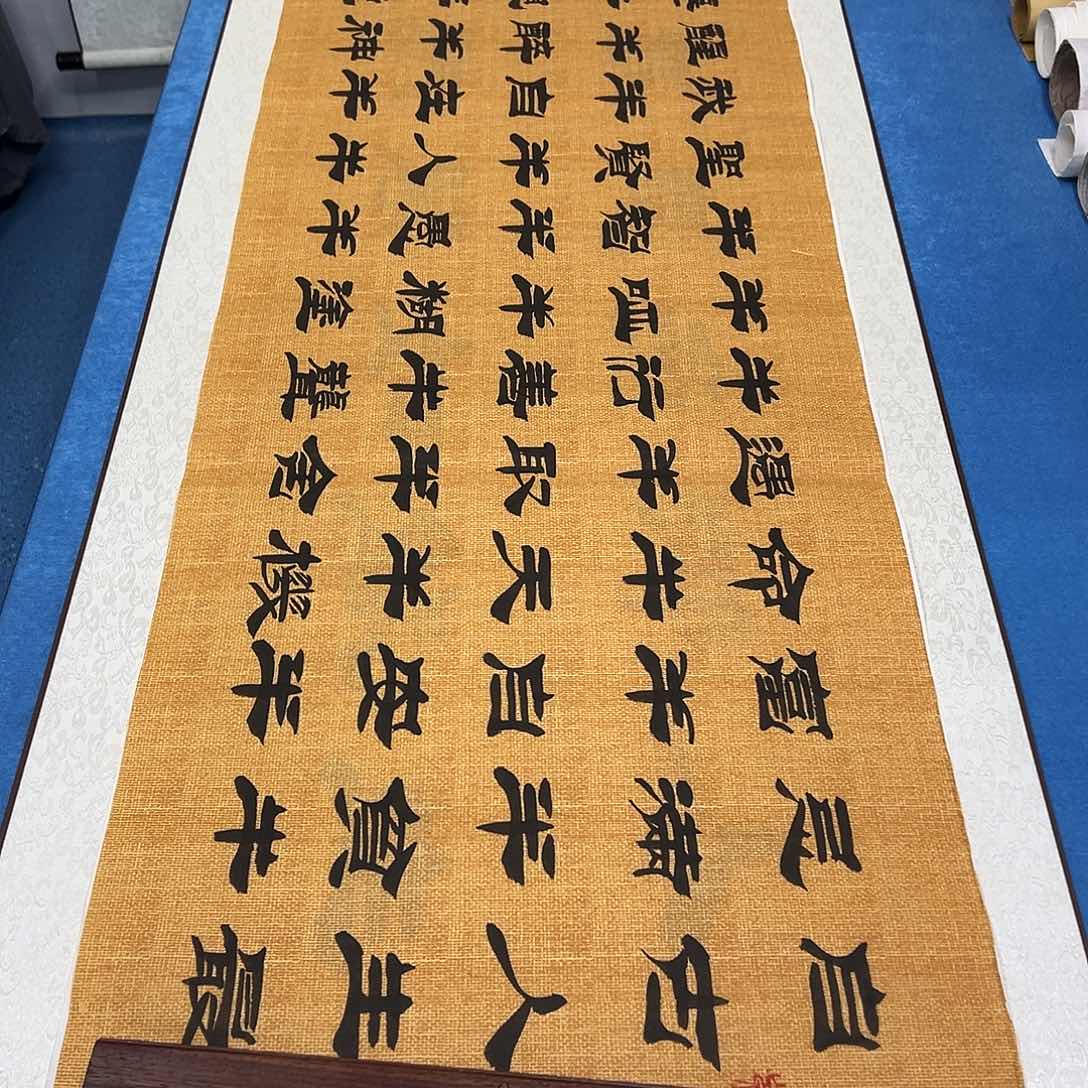 自古人生最
忌滿半貧半
富半自安半
命半天半機
遇半取半舍
半行善半聾
半啞半糊塗
半智半愚半
聖賢半人半
我半自在半
醒半醉半神